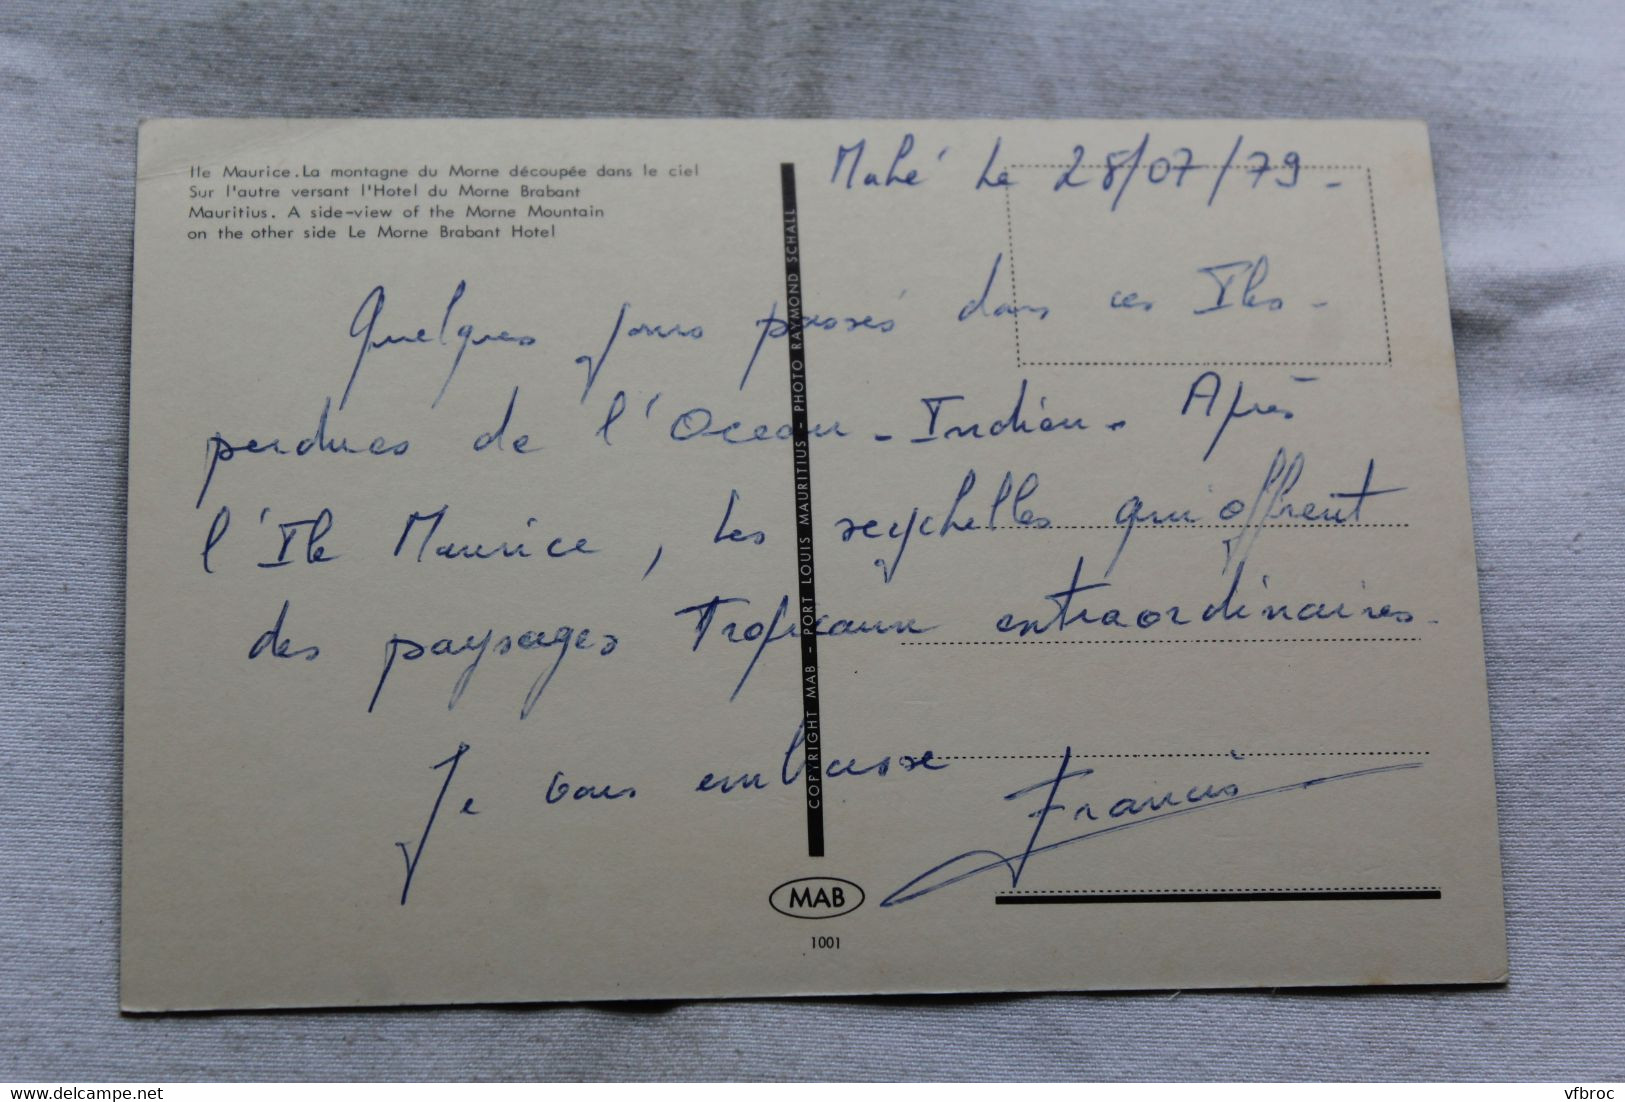 Ile Maurice. La montagne du Morne découpée dans le ciel
Sur l'autre versant l'Hotel du Morne Brabant
Mauritius. A side-view of the Morne Mountain
on the other side Le Morne Brabant Hotel
Mahé le 28/07/79 -
Quelques jours passés dans ces Iles -
perdues de l'Ocean - Indien. Après
l'Ile Maurice, les seychelles qui offrent
des paysages Tropicaux extraordinaires.
Je vous embrasse
Francis
COPYRIGHT MAB - PORT LOUIS MAURITIUS - PHOTO RAYMOND SCHALL
MAB
1001
delcampe.net
vfbroc